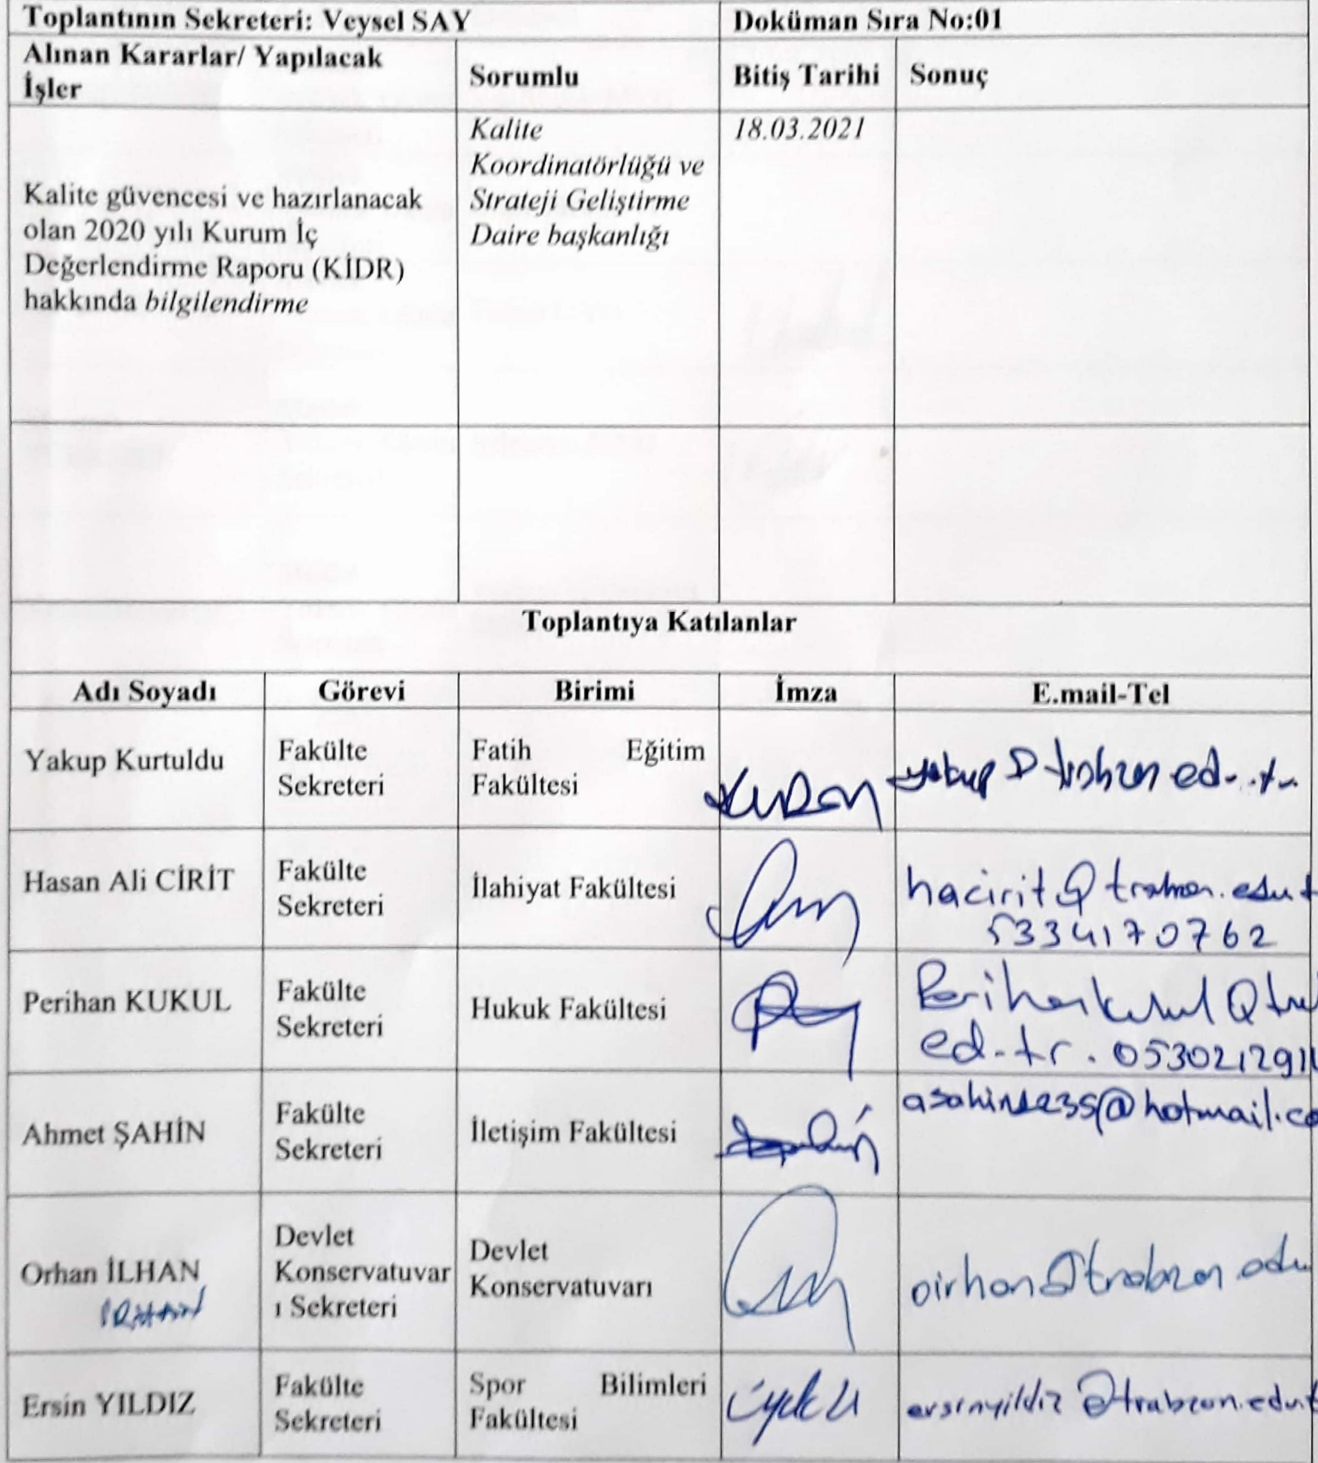 Toplantının Sekreteri: Veysel SAY Doküman Sıra No:01
Alınan Kararlar/ Yapılacak
İşler
Sorumlu
Bitiş Tarihi
Sonuç
Kalite güvencesi ve hazırlanacak
olan 2020 yılı Kurum İç
Değerlendirme Raporu (KİDR)
hakkında bilgilendirme
Kalite
Koordinatörlüğü ve
Strateji Geliştirme
Daire başkanlığı
18.03.2021
Toplantıya Katılanlar
Adı Soyadı Görevi Birimi İmza E.mail-Tel
Yakup Kurtuldu
Fakülte
Sekreteri
Fatih Eğitim
Fakültesi
Hasan Ali CİRİT
Fakülte
Sekreteri
İlahiyat Fakültesi
hacirit@
5334170762
Perihan KUKUL
Fakülte
Sekreteri
Hukuk Fakültesi
Ahmet ŞAHİN
Fakülte
Sekreteri
İletişim Fakültesi
Orhan İLHAN
IRHAN
Devlet
Konservatuvar
ı Sekreteri
Devlet
Konservatuvarı
oirhan@trabzon edu
Ersin YILDIZ
Fakülte
Sekreteri
Spor Bilimleri
Fakültesi
ersinyildiz@trabzon.edu.t